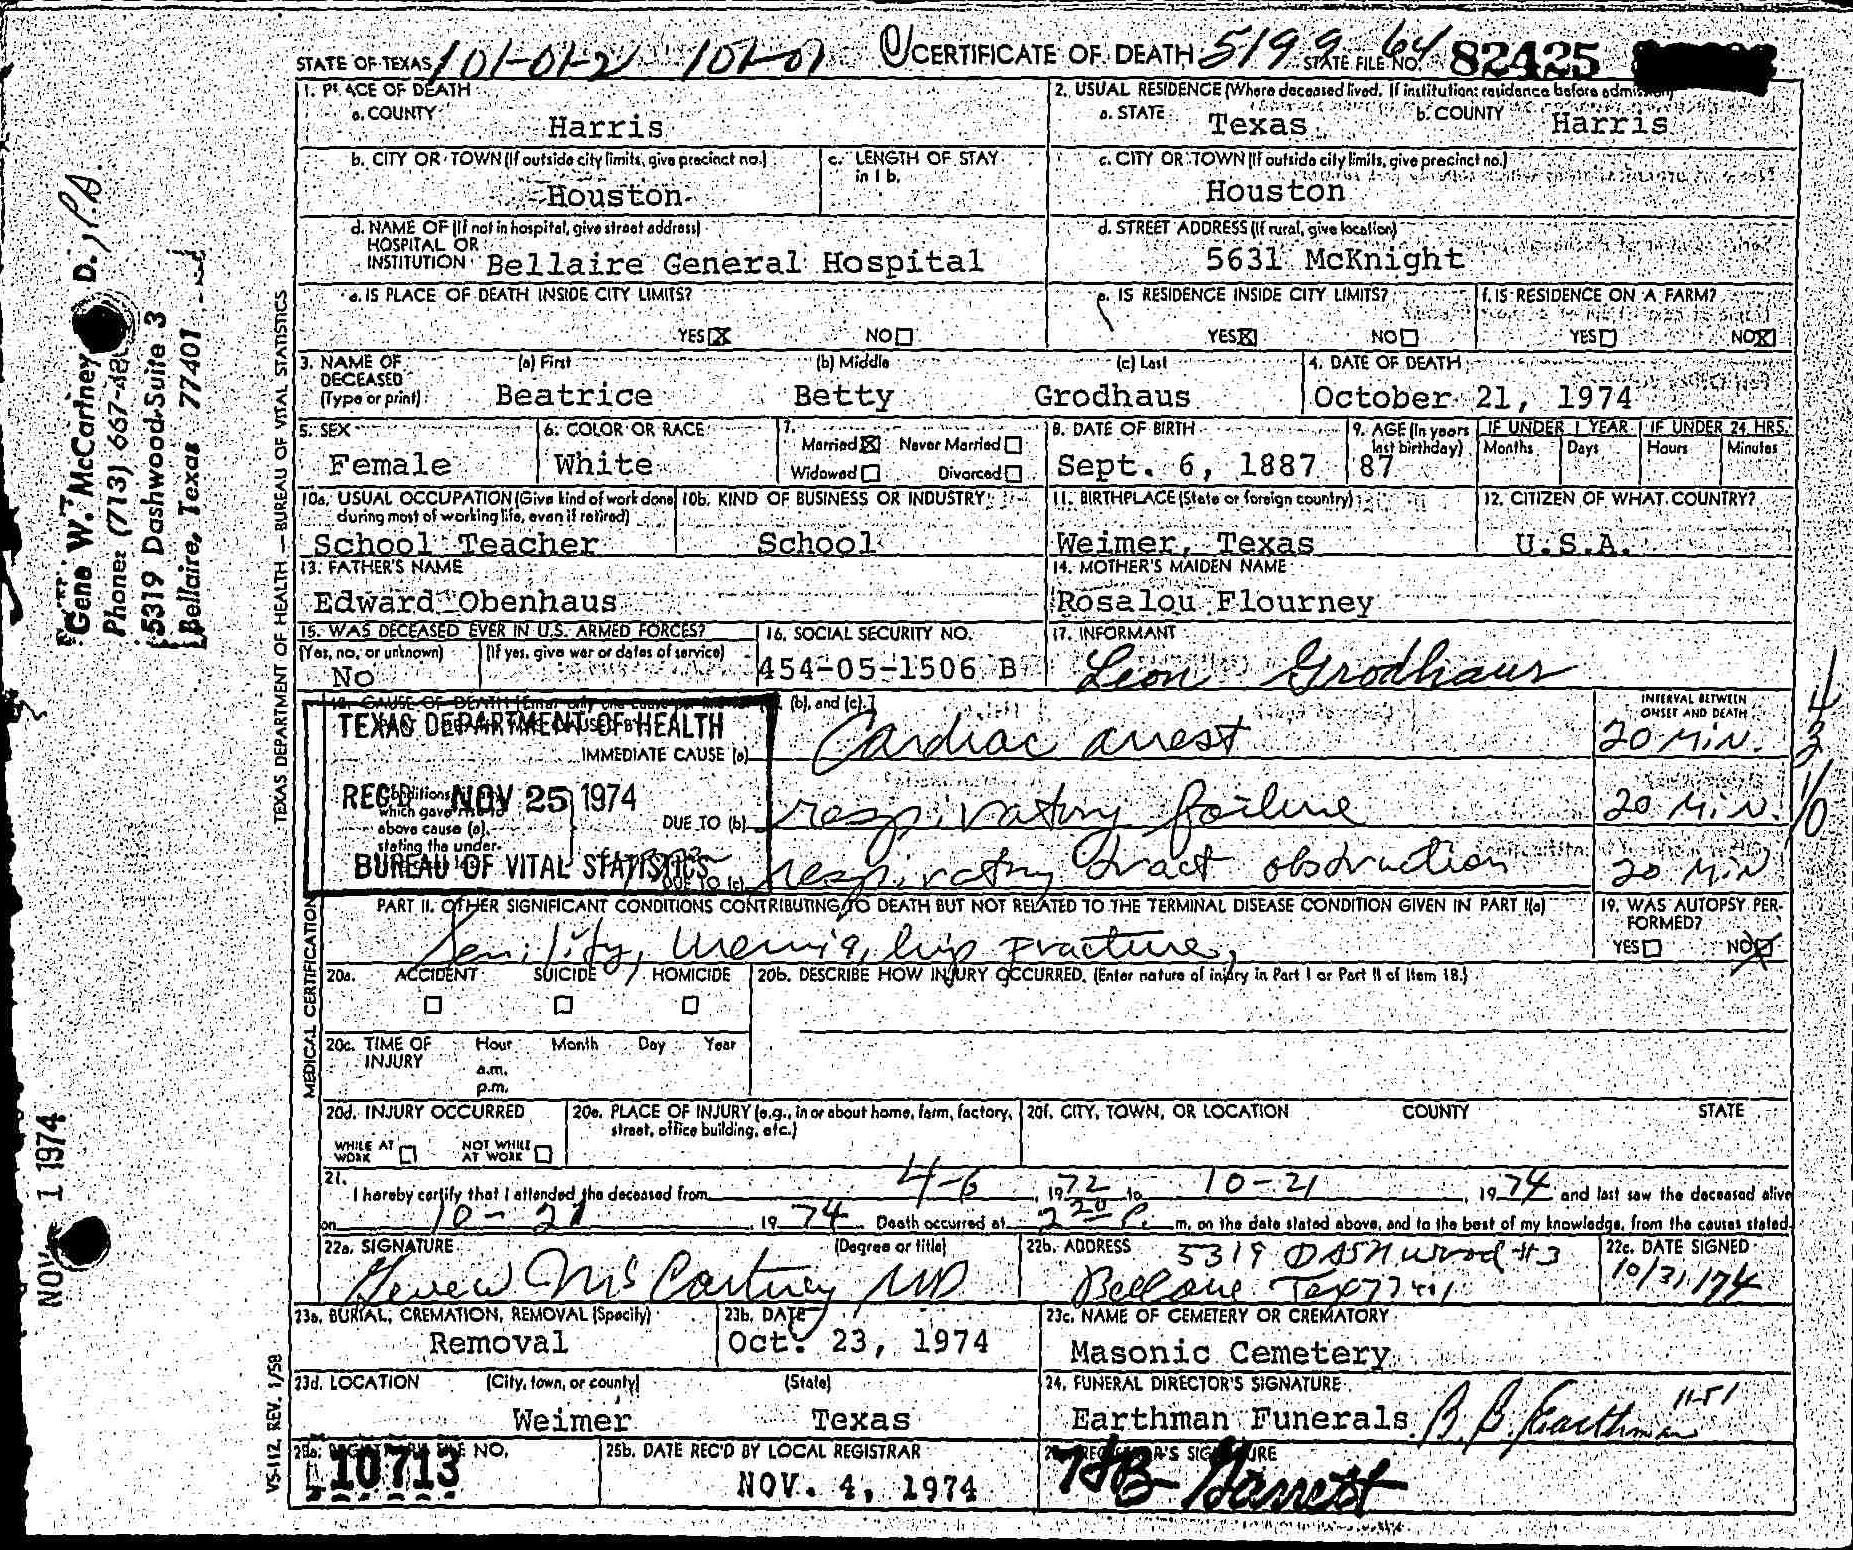 STATE OF TEXAS 101-01-2 101-01 CERTIFICATE OF DEATH 5199 64 STATE FILE NO. 82425
1. PLACE OF DEATH
a. COUNTY
Harris
2. USUAL RESIDENCE (Where deceased lived. If institution: residence before admission)
a. STATE Texas b. COUNTY Harris
b. CITY OR TOWN (If outside city limits, give precinct no.)
Houston
c. LENGTH OF STAY
in 1 b.
c. CITY OR TOWN (If outside city limits, give precinct no.)
Houston
d. NAME OF (If not in hospital, give street address)
HOSPITAL OR
INSTITUTION Bellaire General Hospital
d. STREET ADDRESS (If rural, give location)
5631 McKnight
e. IS PLACE OF DEATH INSIDE CITY LIMITS?
YES ☒ NO ☐
e. IS RESIDENCE INSIDE CITY LIMITS?
YES ☒ NO ☐
f. IS RESIDENCE ON A FARM?
YES ☐ NO ☒
3. NAME OF
DECEASED
(Type or print)
(a) First (b) Middle (c) Last
Beatrice Betty Grodhaus
4. DATE OF DEATH
October 21, 1974
5. SEX
Female
6. COLOR OR RACE
White
7.
Married ☒ Never Married ☐
Widowed ☐ Divorced ☐
8. DATE OF BIRTH
Sept. 6, 1887
9. AGE (In years
last birthday)
87
IF UNDER 1 YEAR
Months Days
IF UNDER 24 HRS.
Hours Minutes
10a. USUAL OCCUPATION (Give kind of work done
during most of working life, even if retired)
School Teacher
10b. KIND OF BUSINESS OR INDUSTRY
School
11. BIRTHPLACE (State or foreign country)
Weimer, Texas
12. CITIZEN OF WHAT COUNTRY?
U.S.A.
13. FATHER'S NAME
Edward Obenhaus
14. MOTHER'S MAIDEN NAME
Rosalou Flourney
15. WAS DECEASED EVER IN U.S. ARMED FORCES?
(Yes, no, or unknown) (If yes, give war or dates of service)
No
16. SOCIAL SECURITY NO.
454-05-1506 B
17. INFORMANT
Leon Grodhaus
18. CAUSE OF DEATH [Enter only one cause per line for (a), (b), and (c).]
INTERVAL BETWEEN
ONSET AND DEATH
TEXAS DEPARTMENT OF HEALTH
REC'D NOV 25 1974
BUREAU OF VITAL STATISTICS
IMMEDIATE CAUSE (a) Cardiac arrest 20 Min.
Conditions
which gave rise to
above cause (a),
stating the under-
DUE TO (b) respiratory failure 20 Min.
DUE TO (c) respiratory tract obstruction 20 Min
PART II. OTHER SIGNIFICANT CONDITIONS CONTRIBUTING TO DEATH BUT NOT RELATED TO THE TERMINAL DISEASE CONDITION GIVEN IN PART I(a)
Senility, Uremia, hip fracture,
19. WAS AUTOPSY PER-
FORMED?
YES ☐ NO ☒
20a. ACCIDENT SUICIDE HOMICIDE
20b. DESCRIBE HOW INJURY OCCURRED. (Enter nature of injury in Part I or Part II of Item 18.)
20c. TIME OF
INJURY
Hour Month Day Year
a.m.
p.m.
20d. INJURY OCCURRED
WHILE AT
WORK ☐
NOT WHILE
AT WORK ☐
20e. PLACE OF INJURY (e.g., in or about home, farm, factory,
street, office building, etc.)
20f. CITY, TOWN, OR LOCATION COUNTY STATE
21.
I hereby certify that I attended the deceased from 4-6, 1972 to 10-21, 1974 and last saw the deceased alive
on 10-21, 1974 Death occurred at 2 20 P. m. on the date stated above, and to the best of my knowledge, from the causes stated.
22a. SIGNATURE (Degree or title)
Gene W McCartney MD
22b. ADDRESS 5319 Dashwood #3
Bellaire Tex 77401
22c. DATE SIGNED
10/31/74
23a. BURIAL, CREMATION, REMOVAL (Specify)
Removal
23b. DATE
Oct. 23, 1974
23c. NAME OF CEMETERY OR CREMATORY
Masonic Cemetery
23d. LOCATION (City, town, or county) (State)
Weimer Texas
24. FUNERAL DIRECTOR'S SIGNATURE
Earthman Funerals B. B. Earthman 11-51
25a. REGISTRAR'S FILE NO.
10713
25b. DATE REC'D BY LOCAL REGISTRAR
NOV. 4, 1974
25c. REGISTRAR'S SIGNATURE
HB Garrett
TEXAS DEPARTMENT OF HEALTH — BUREAU OF VITAL STATISTICS
MEDICAL CERTIFICATION
VS-112 REV. 1/58
Gene W. McCartney D., P.A.
Phone: (713) 667-
5319 Dashwood-Suite 3
Bellaire, Texas 77401
NOV 1 1974
4
3